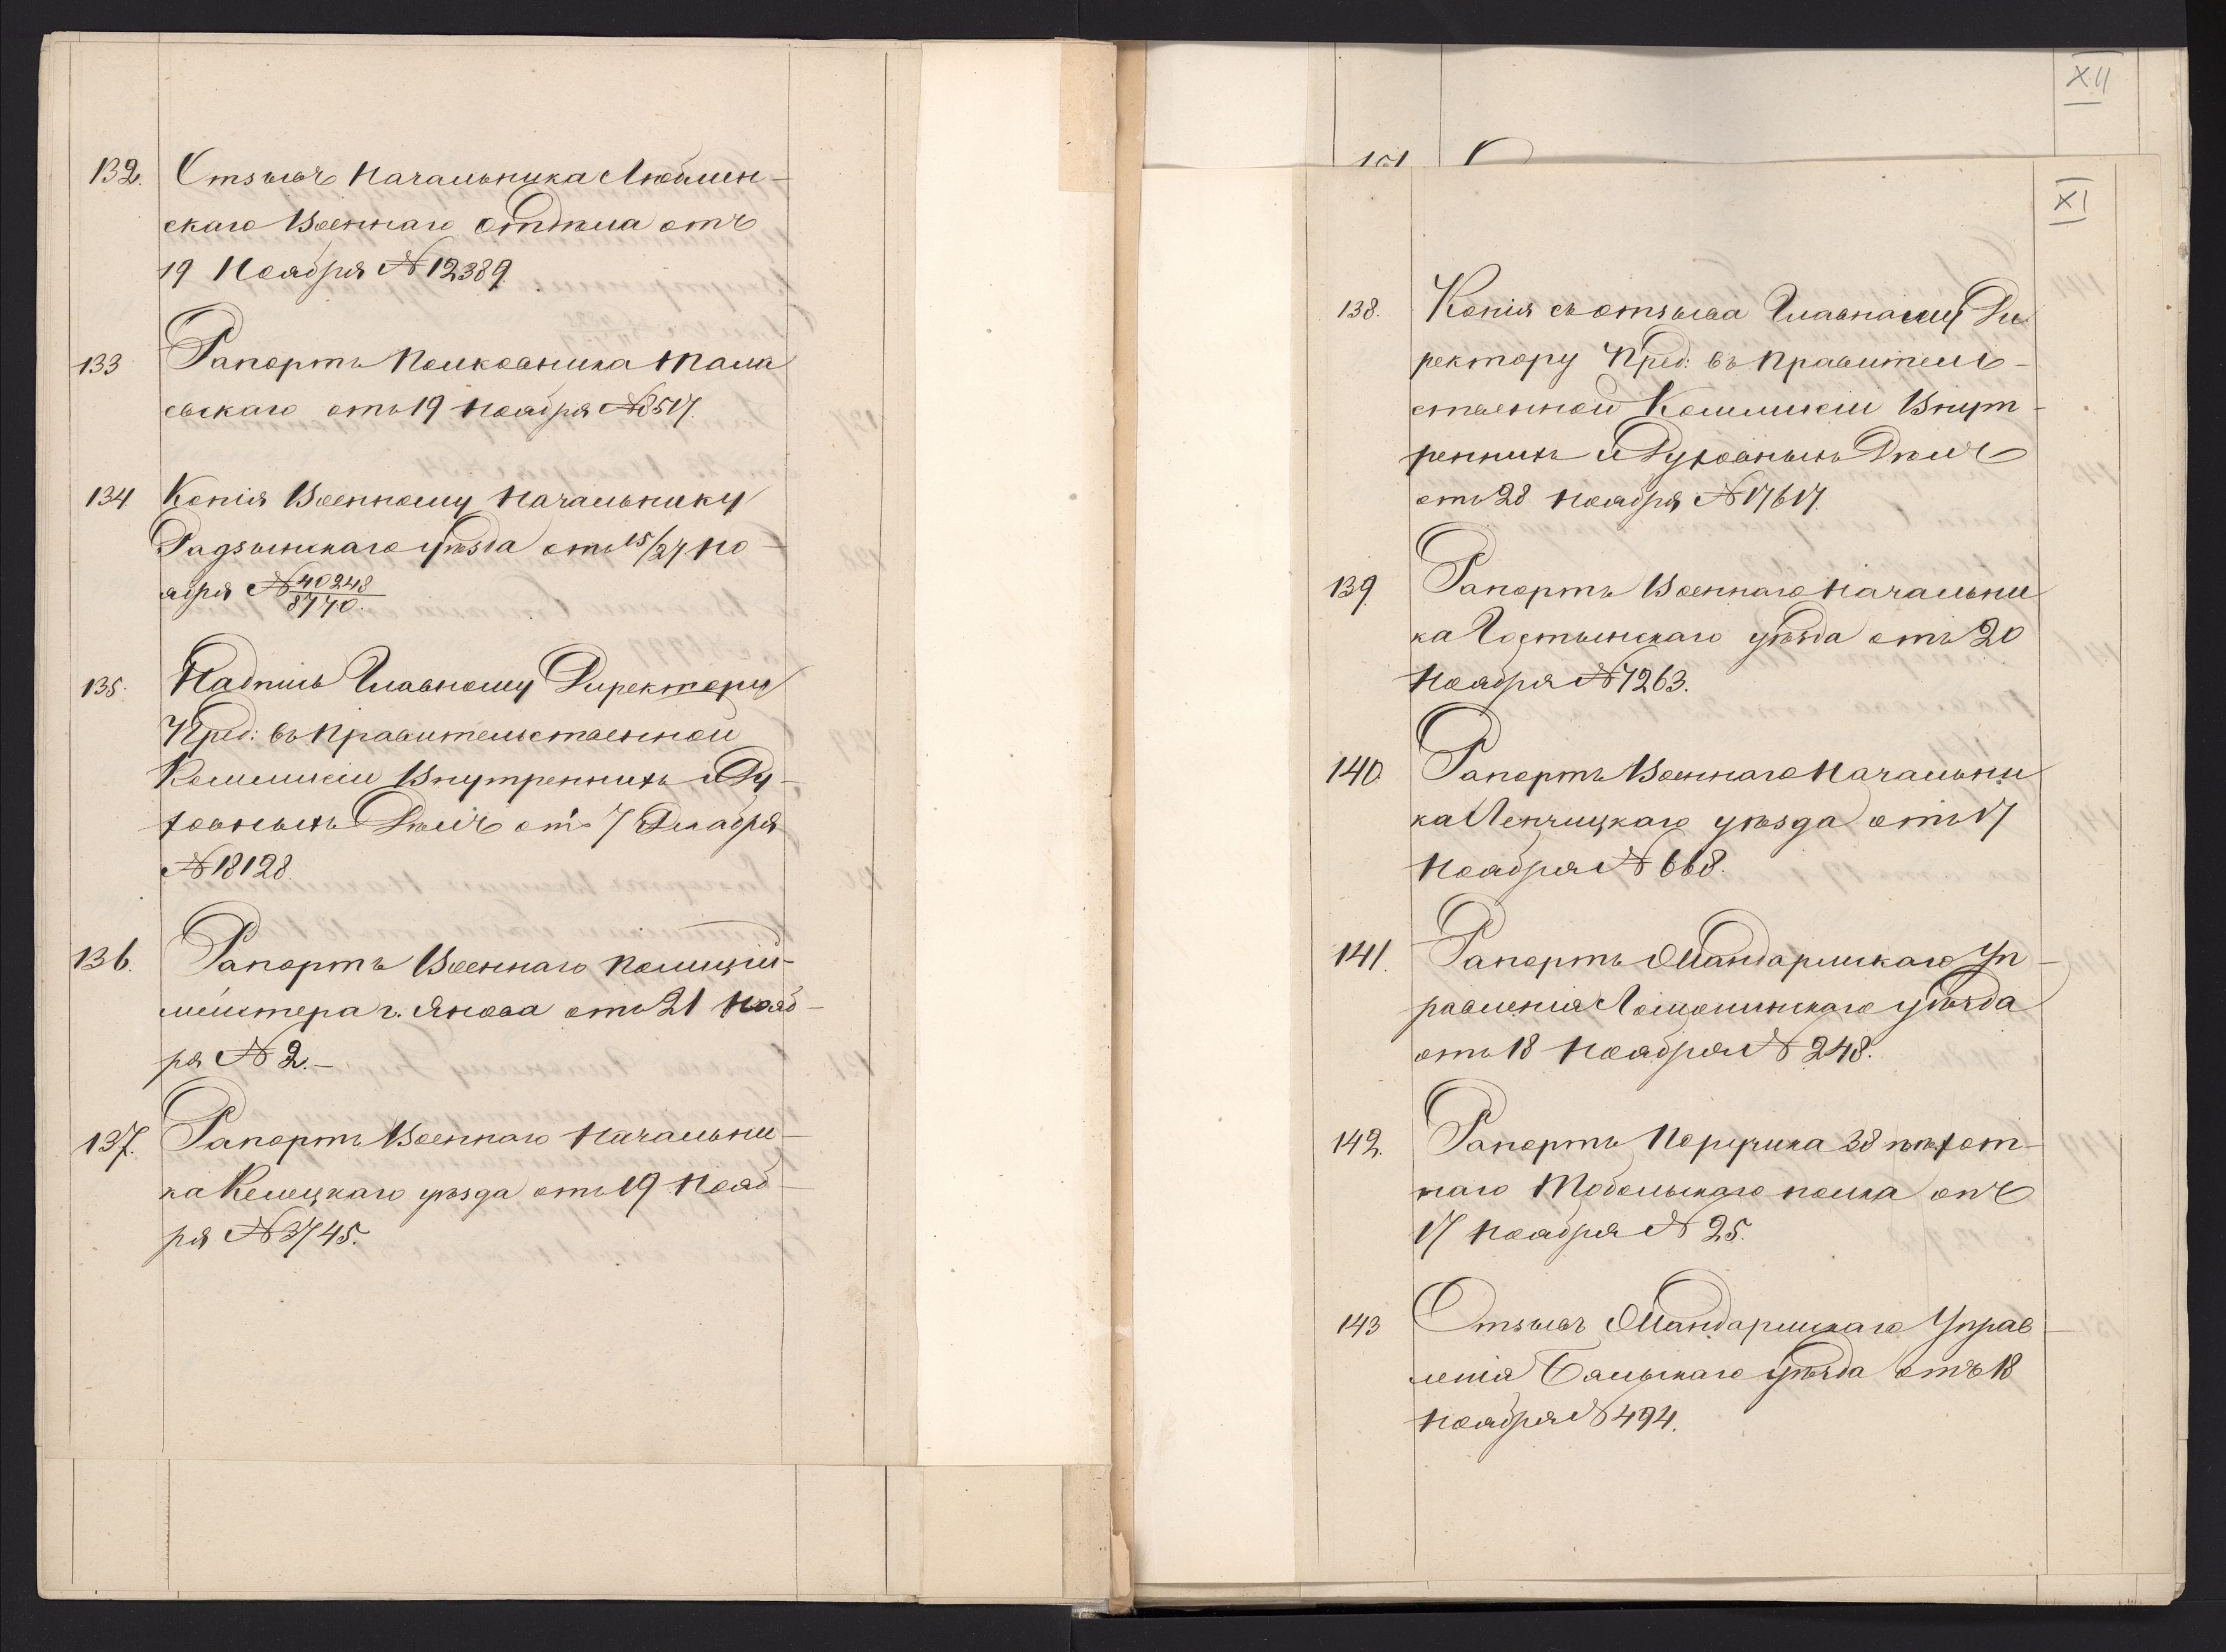 132. Отзывъ Начальника Люблин-
скаго Военнаго отдѣла отъ
19 Ноября № 12389.
133 Рапортъ Полковника
отъ 19 Ноября № 8517.
134 Копія Военному Начальнику
Радзынскаго уѣзда отъ 15/27 Но-
ября № 40248/8770.
135. Надпись Главному Директору
Пред: въ Правительственной
Коммисіи Внутреннихъ и Ду-
ховныхъ Дѣлъ отъ 7 Декабря
№ 18128.
136. Рапортъ Военнаго Полицій-
мейстера г. Янова отъ 21 Нояб-
ря № 2.-
137. Рапортъ Военнаго Начальни-
ка Келецкаго уѣзда отъ 19 Нояб-
ря № 3745.
XII
151
XI
138. Копія съ отзыва Главному Ди-
ректору Пред: въ Правитель-
ственной Коммисіи Внут-
реннихъ и Духовныхъ Дѣлъ
отъ 28 Ноября № 17617.
139. Рапортъ Военнаго Начальни
ка Гостынскаго уѣзда отъ 20
Ноября № 7263.
140. Рапортъ Военнаго Начальни
ка Ленчицкаго уѣзда отъ 17
Ноября № 668.
141. Рапортъ Жандармскаго Уп-
равленія уѣзда
отъ 18 Ноября № 248.
142. Рапортъ Поручика 38 пѣхот-
наго Тобольскаго полка отъ
17 Ноября № 25.
143 Отзывъ Жандармскаго Управ-
ленія Бѣльскаго уѣзда отъ 18
Ноября № 494.